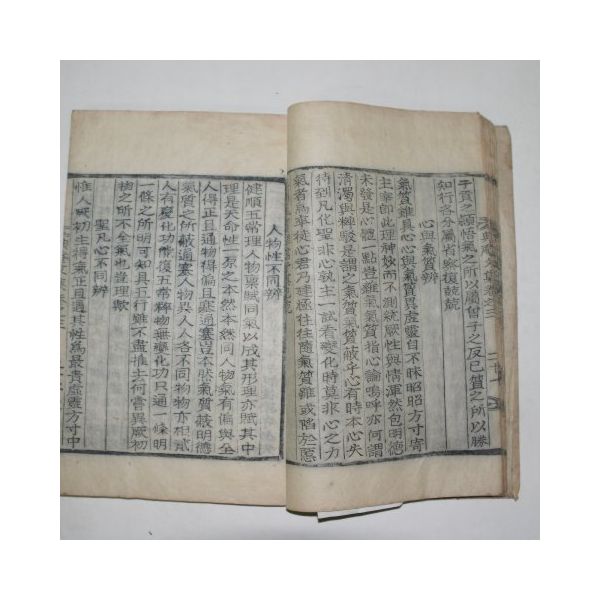 子貢之穎悟氣之所以屬曾子之反己質之所以勝
知行各分屬省察復兢兢
心與氣質辨
氣質雖具心心異毘虛靈自不昧昭昭方寸寄
主宰卽此理神妙而不測統厥性與情渾然包明德
未發是心體一點豈雜氣氣質指心論嗚呼亦何謂
清濁與粹駁是謂之氣質氣質蔽乎心有時本心失
待到凡化聖非心孰主一試看變化時莫非心之力
氣者爲卒徒心君乃建極往往隨氣質雖或陷於惡
人物性不同辨
健順五常理人物稟賦同氣以成其形理亦賦其中
理是天命性一原之本然本然同人物氣有偏與全
人得正且通物得偏且塞通塞豈本然氣質蔽明德
氣質之所蔽通塞人異人人各不同物物亦相貳
人有變化功能復五常德物無變化功只通一條明
一條之所明可知具五行雖不盡推土何嘗異厥初
物之所不全氣也豈理歟
聖凡心不同辨
惟人厥初生得氣正且通其性爲最貴虛靈方寸中